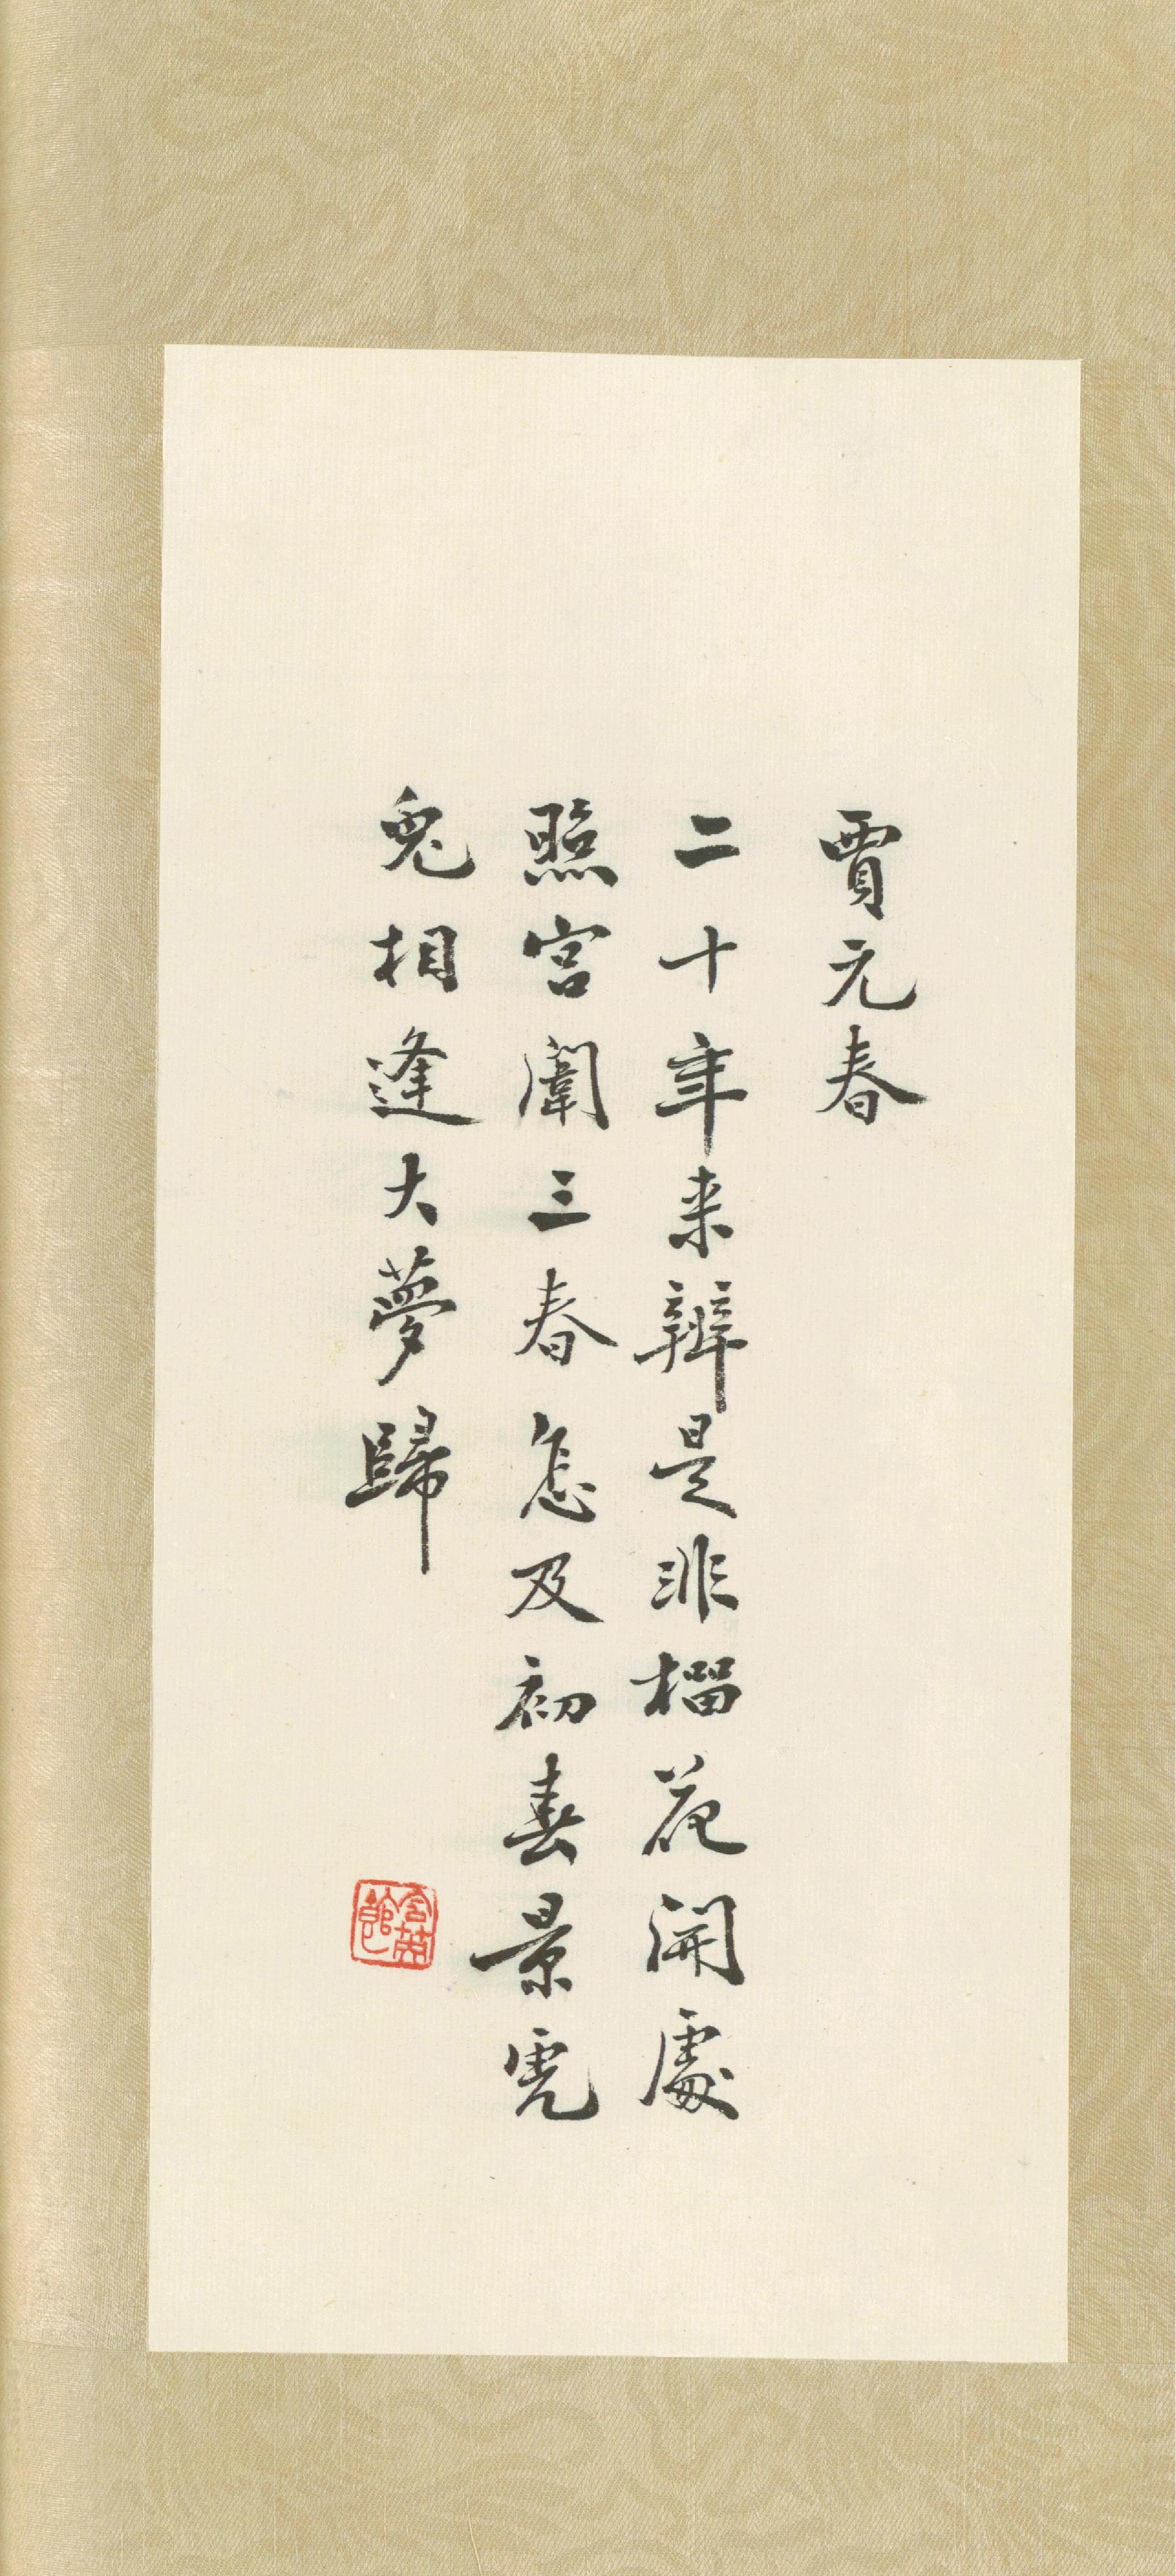 賈元春
二十年来辨是非榴花開處
照宮闈三春怎及初春景虎
兔相逢大夢歸